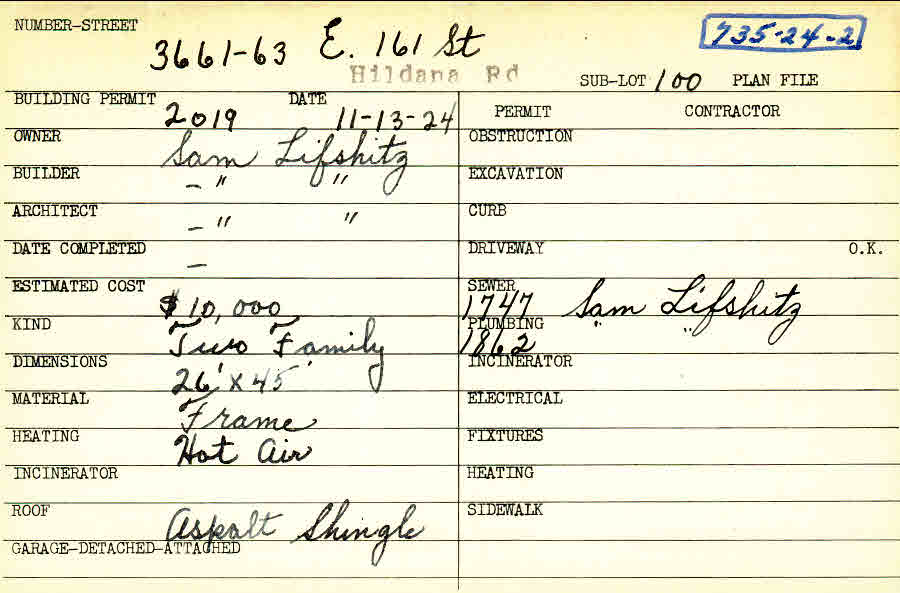 NUMBER-STREET 3661-63 E. 161 St 735-24-2
Hildana Rd SUB-LOT 100 PLAN FILE
BUILDING PERMIT 2019 DATE 11-13-24 PERMIT CONTRACTOR
OWNER Sam Lifshitz OBSTRUCTION
BUILDER - " " EXCAVATION
ARCHITECT - " " CURB
DATE COMPLETED - DRIVEWAY O.K.
ESTIMATED COST $10,000 SEWER 1747 Sam Lifshitz
KIND Two Family PLUMBING 1862 " "
DIMENSIONS 26' x 45' INCINERATOR
MATERIAL Frame ELECTRICAL
HEATING Hot Air FIXTURES
INCINERATOR HEATING
ROOF Aspalt Shingle SIDEWALK
GARAGE-DETACHED-ATTACHED